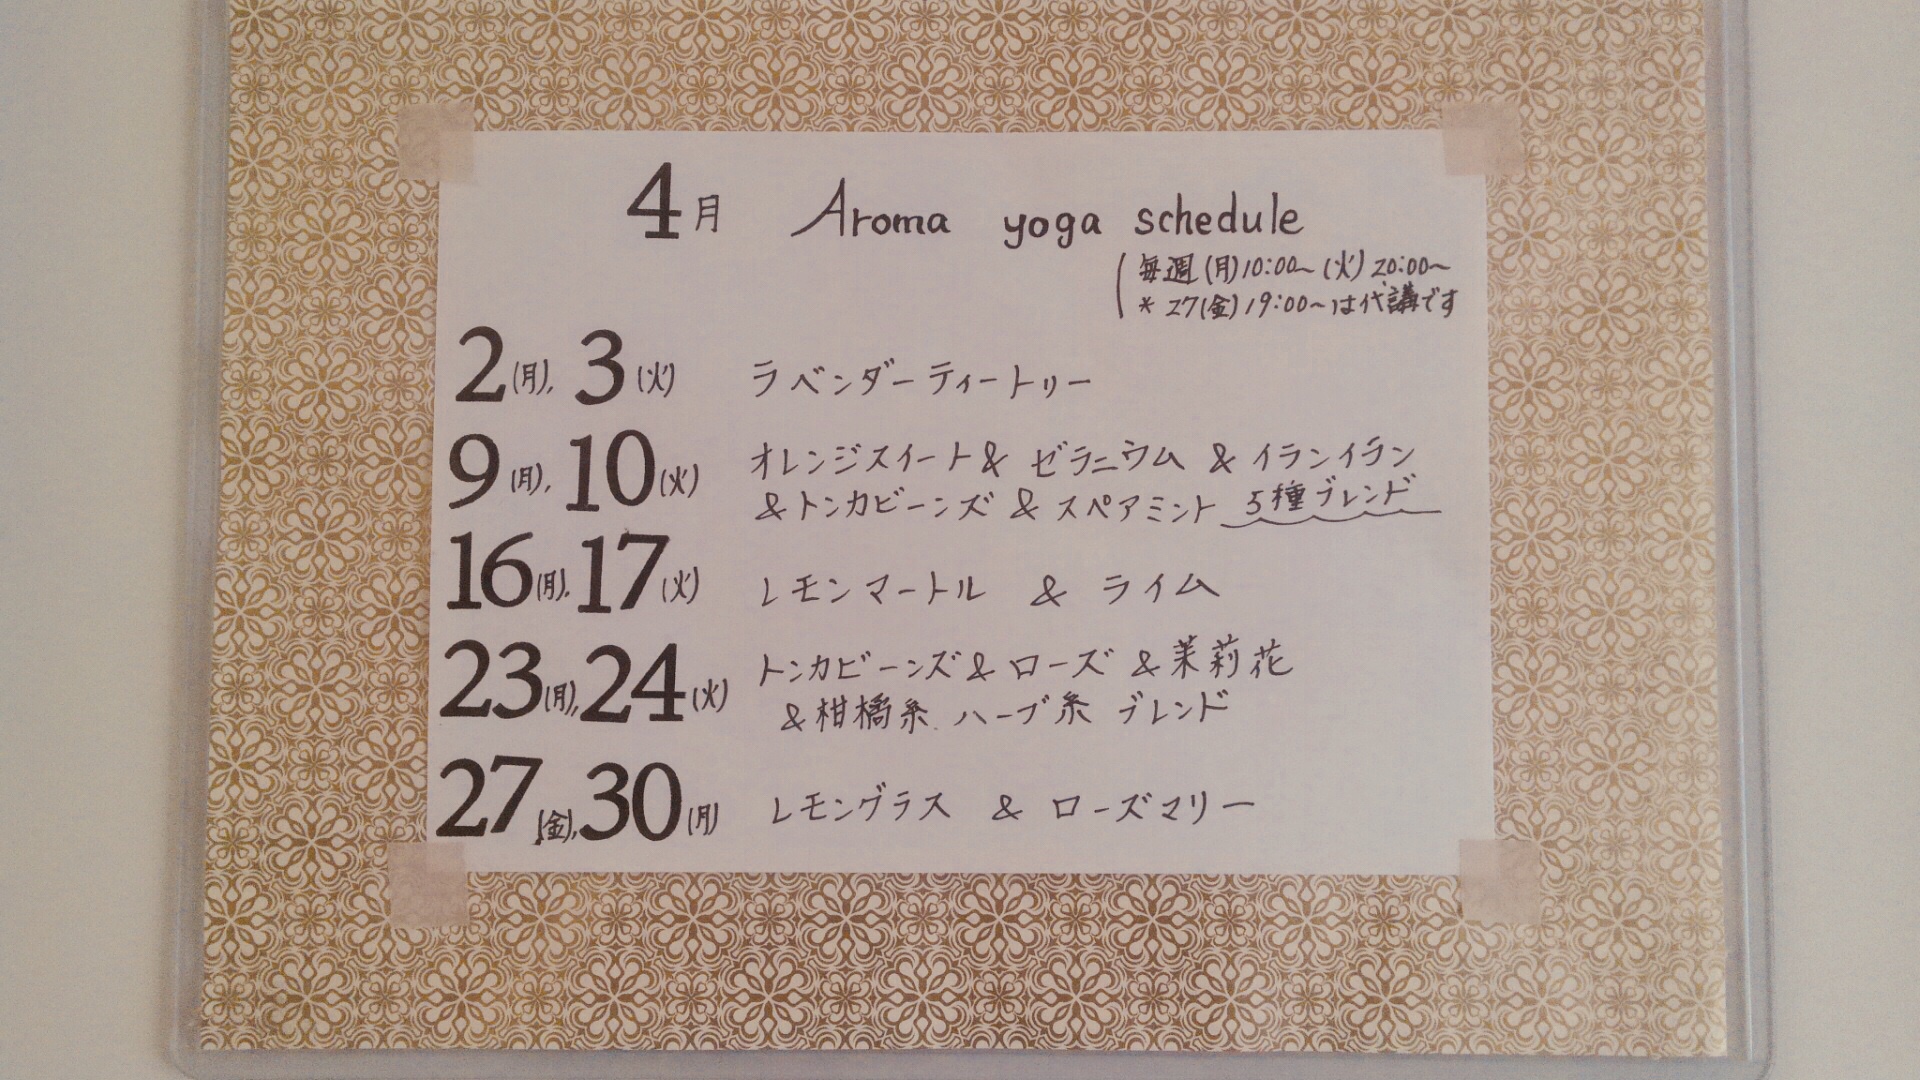 4月 Aroma yoga schedule
毎週(月)10:00~(火)20:00~
* 27(金)19:00~は代講です
2(月), 3(火) ラベンダーティートリー
9(月), 10(火) オレンジスイート& ゼラニウム & イランイラン
&トンカビーンズ & スペアミント 5種ブレンド
16(月), 17(火) レモンマートル & ライム
23(月), 24(火) トンカビーンズ& ローズ &茉莉花
&柑橘系 ハーブ系 ブレンド
27(金), 30(月) レモングラス & ローズマリー